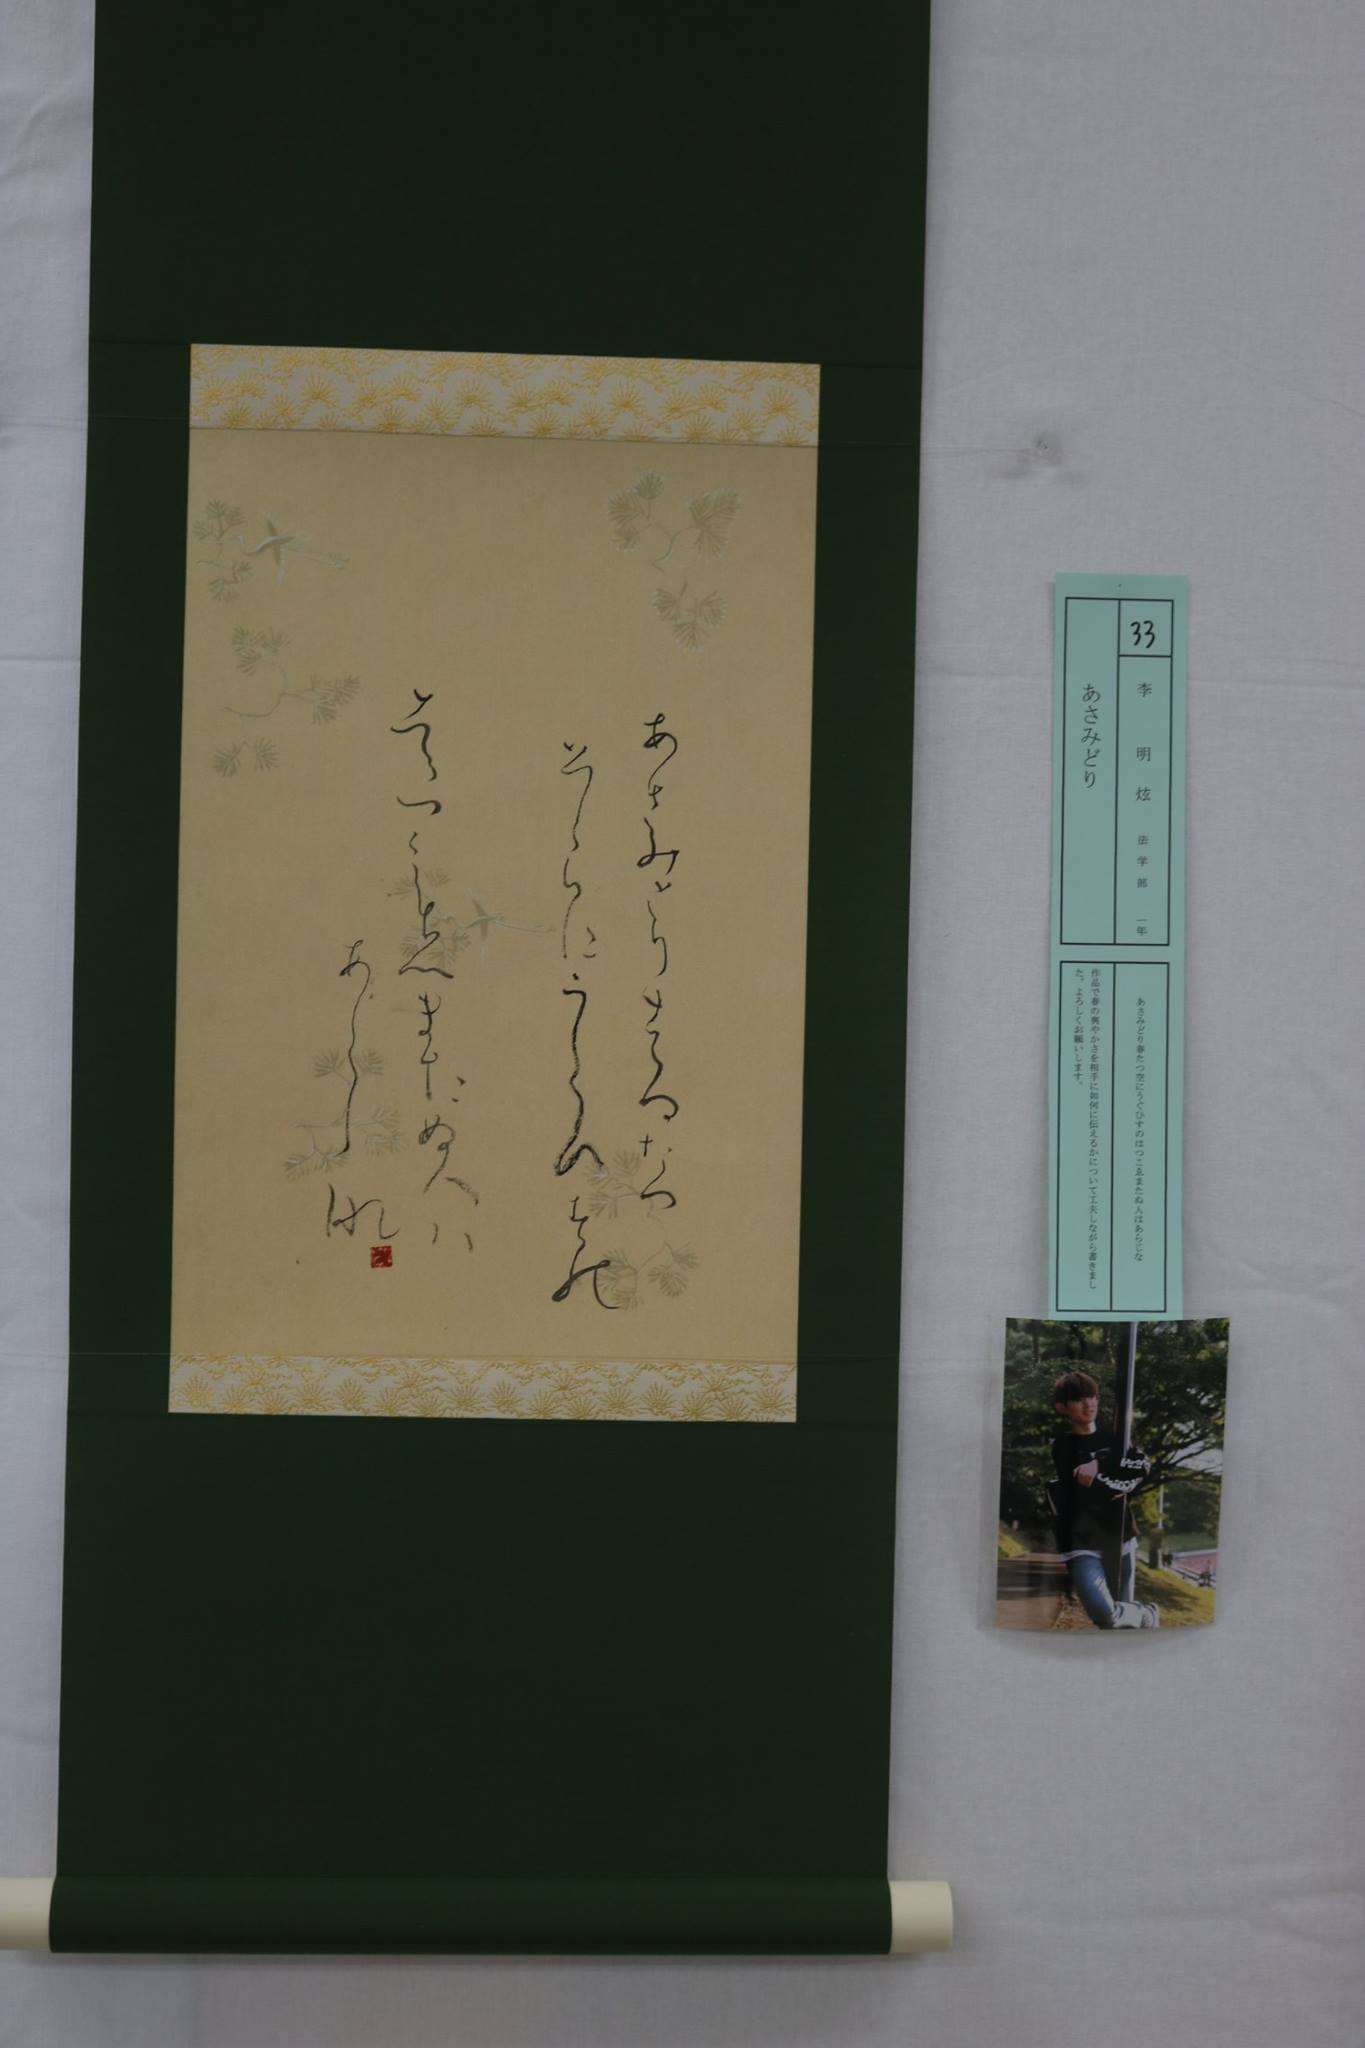 あさみとりはるたつ
そらにうくひすの
はつこゑまたぬ人ハ
あらし
那
33
李 明 炫 法学部 一年
あさみどり
あさみどり春たつ空にうぐひすのはつこゑまたぬ人はあらじな
作品で春の爽やかさを相手に如何に伝えるかについて工夫しながら書きまし
た。よろしくお願いします。